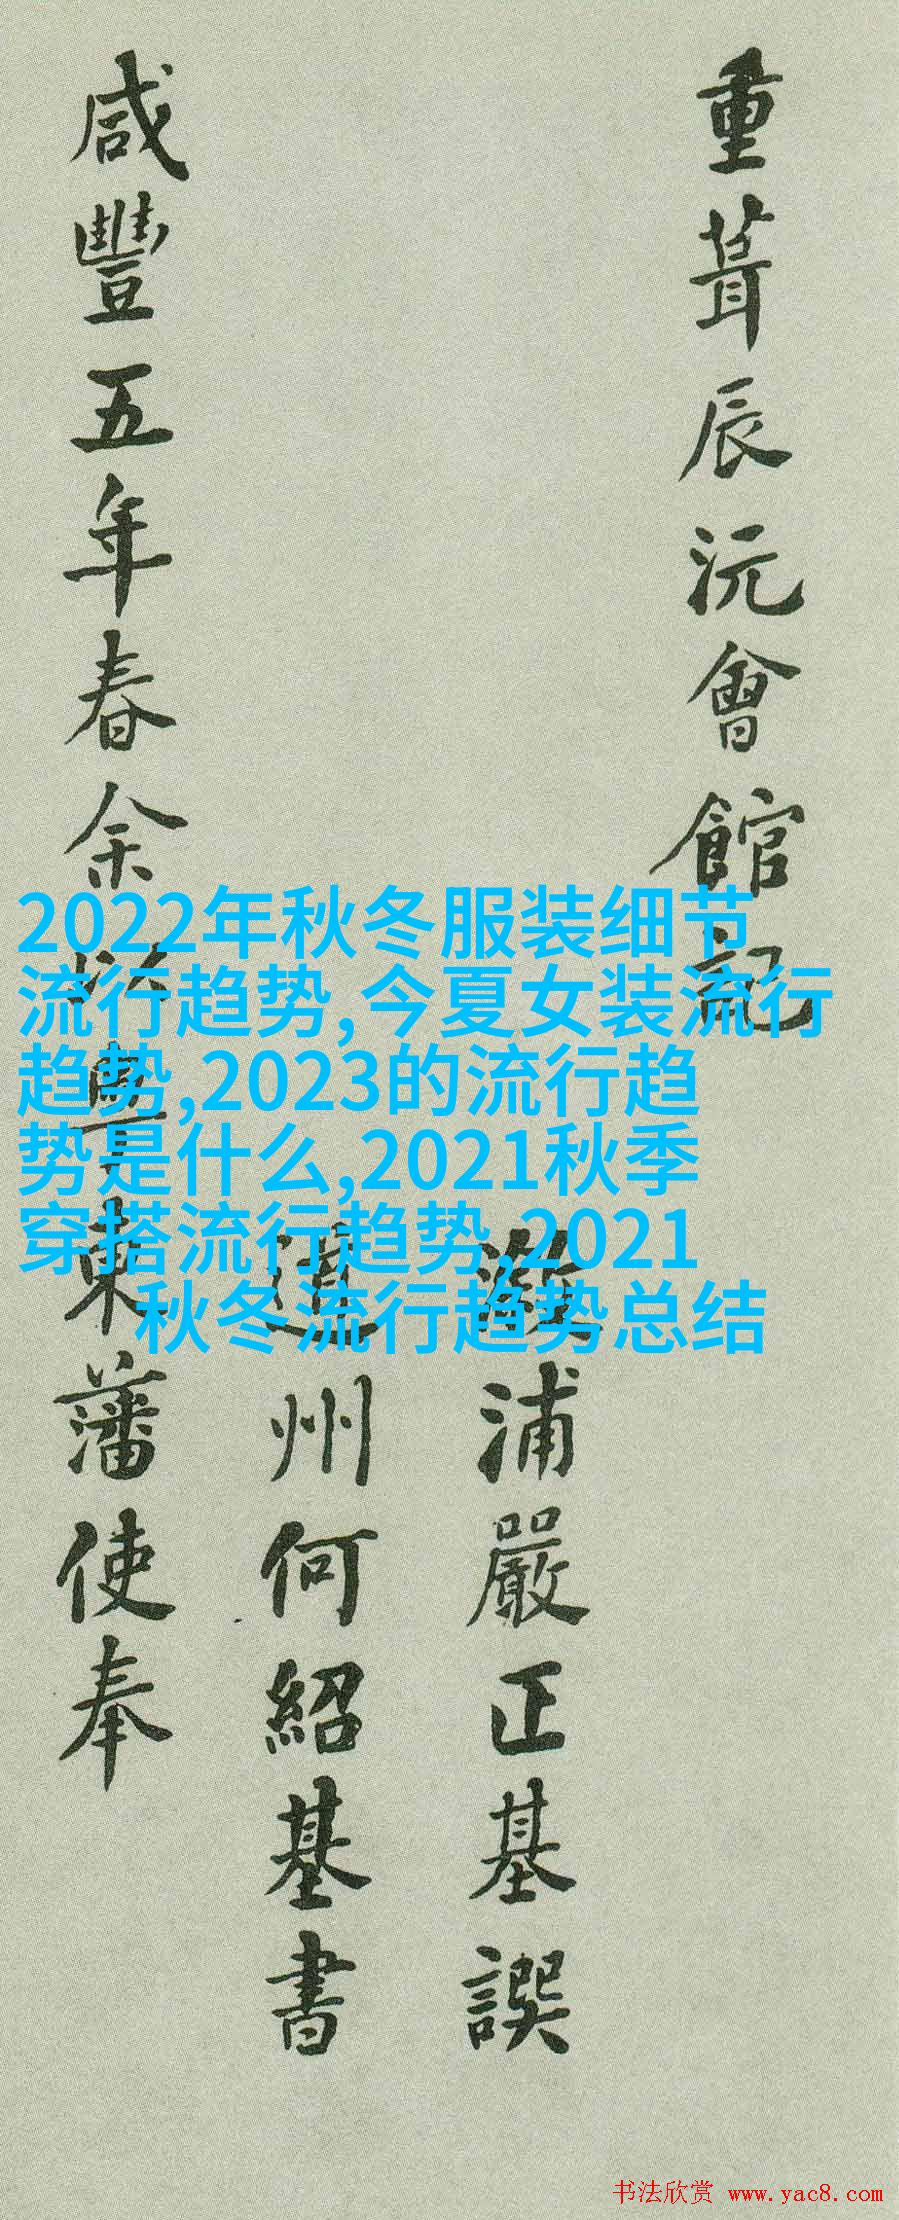 重葺辰沅會館記
漵浦嚴正基譔
道州何紹基書
咸豐五年春余以粵東藩使奉
2022年秋冬服装细节
流行趋势,今夏女装流行
趋势,2023的流行趋
势是什么,2021秋季
穿搭流行趋势,2021
秋冬流行趋势总结
书法欣赏 www.yac8.com